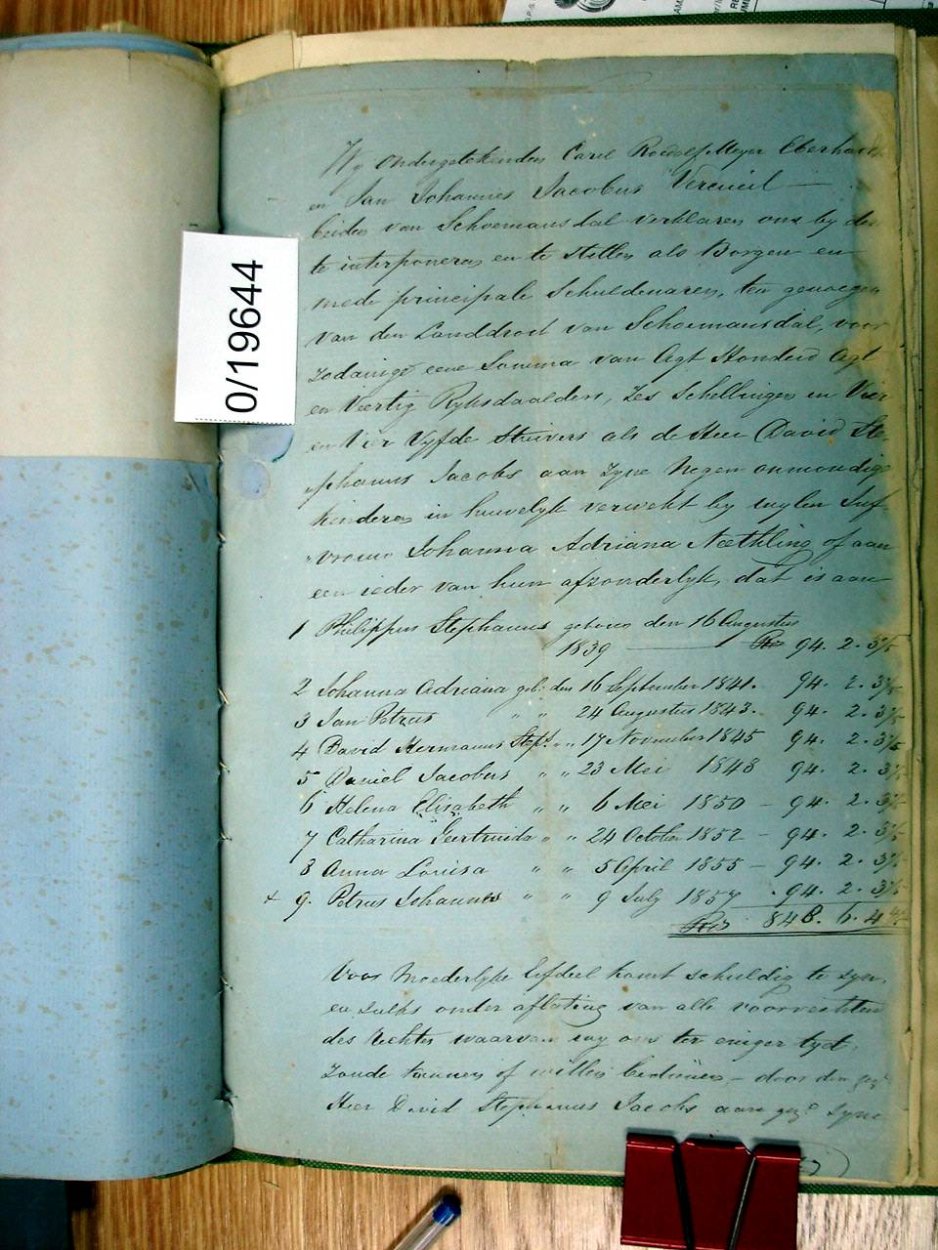 0/19644
Wy Ondergetekenden Carel Roedolf Meyer Eberhard
en Jan Johannes Jacobus Vercuiel —
beide van Schoemansdal verklaren ons by de
te interponeren en te stellen als Borgen en
mede principale Schuldenaren, ten genoegen
van den Landdrost van Schoemansdal, voor
zodanige eene Somma van Agt Honderd Agt
en Veertig Ryksdaalders, Zes Schellingen en Vier
en Vier Vyfde Stuivers als de Heer David Ste-
"phanus Jacobs aan zyne Negen onmondige
kinderen in huwelyk verwekt by wylen Juf-
"vrouw Johanna Adriana Nœthling of aan
een ieder van hun afzonderlyk, dat is aan
1 Philippus Stephanus geboren den 16 Augustus
1839 — Rds 94. 2. 3 3/5
2 Johanna Adriana geb: den 16 September 1841. 94. 2. 3 3/5
3 Jan Petrus " " 24 Augustus 1843. 94. 2. 3 3/5
4 David Hermanus Steph: " " 17 November 1845 94. 2. 3 3/5
5 Daniel Jacobus " " 23 Mei 1848 94. 2. 3 3/5
6 Helena Elisabeth " " 6 Mei 1850 - 94. 2. 3 3/5
7 Catharina Geertruida " " 24 October 1852 - 94. 2. 3 3/5
8 Anna Louisa " " 5 April 1855 - 94. 2. 3 3/5
+ 9. Petrus Johannes " " 9 July 1857 . 94. 2. 3 3/5
Rds 848. 6. 4 4/5
Voor Moederlyke Erfdeel komt schuldig te zyn,
en zulks onder aflating van alle voorrechten
des Rechts waarvan wy ons ter eeniger tyd
zoude kunnen of willen bedienen – door den gez:
Heer David Stephanus Jacobs aan gez: zyne